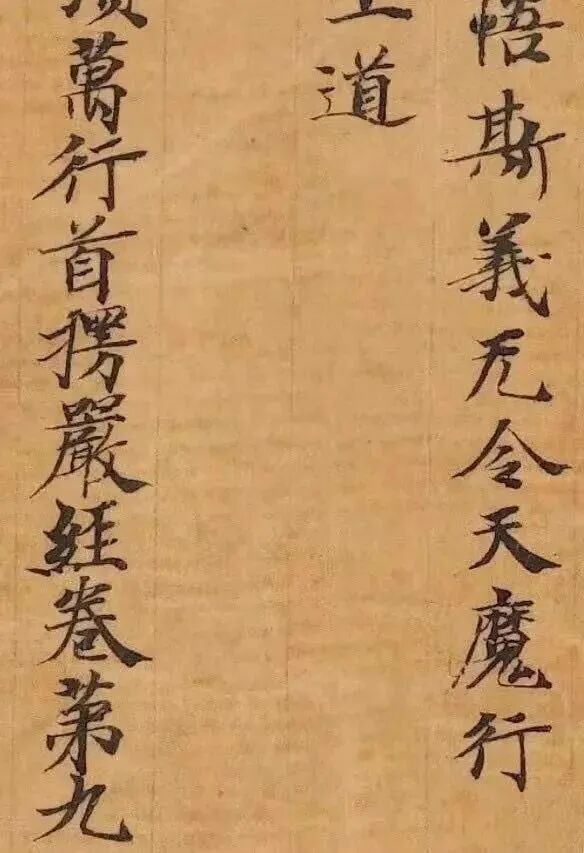 悟斯義无令天魔行
上道
頂萬行首楞嚴經卷第九